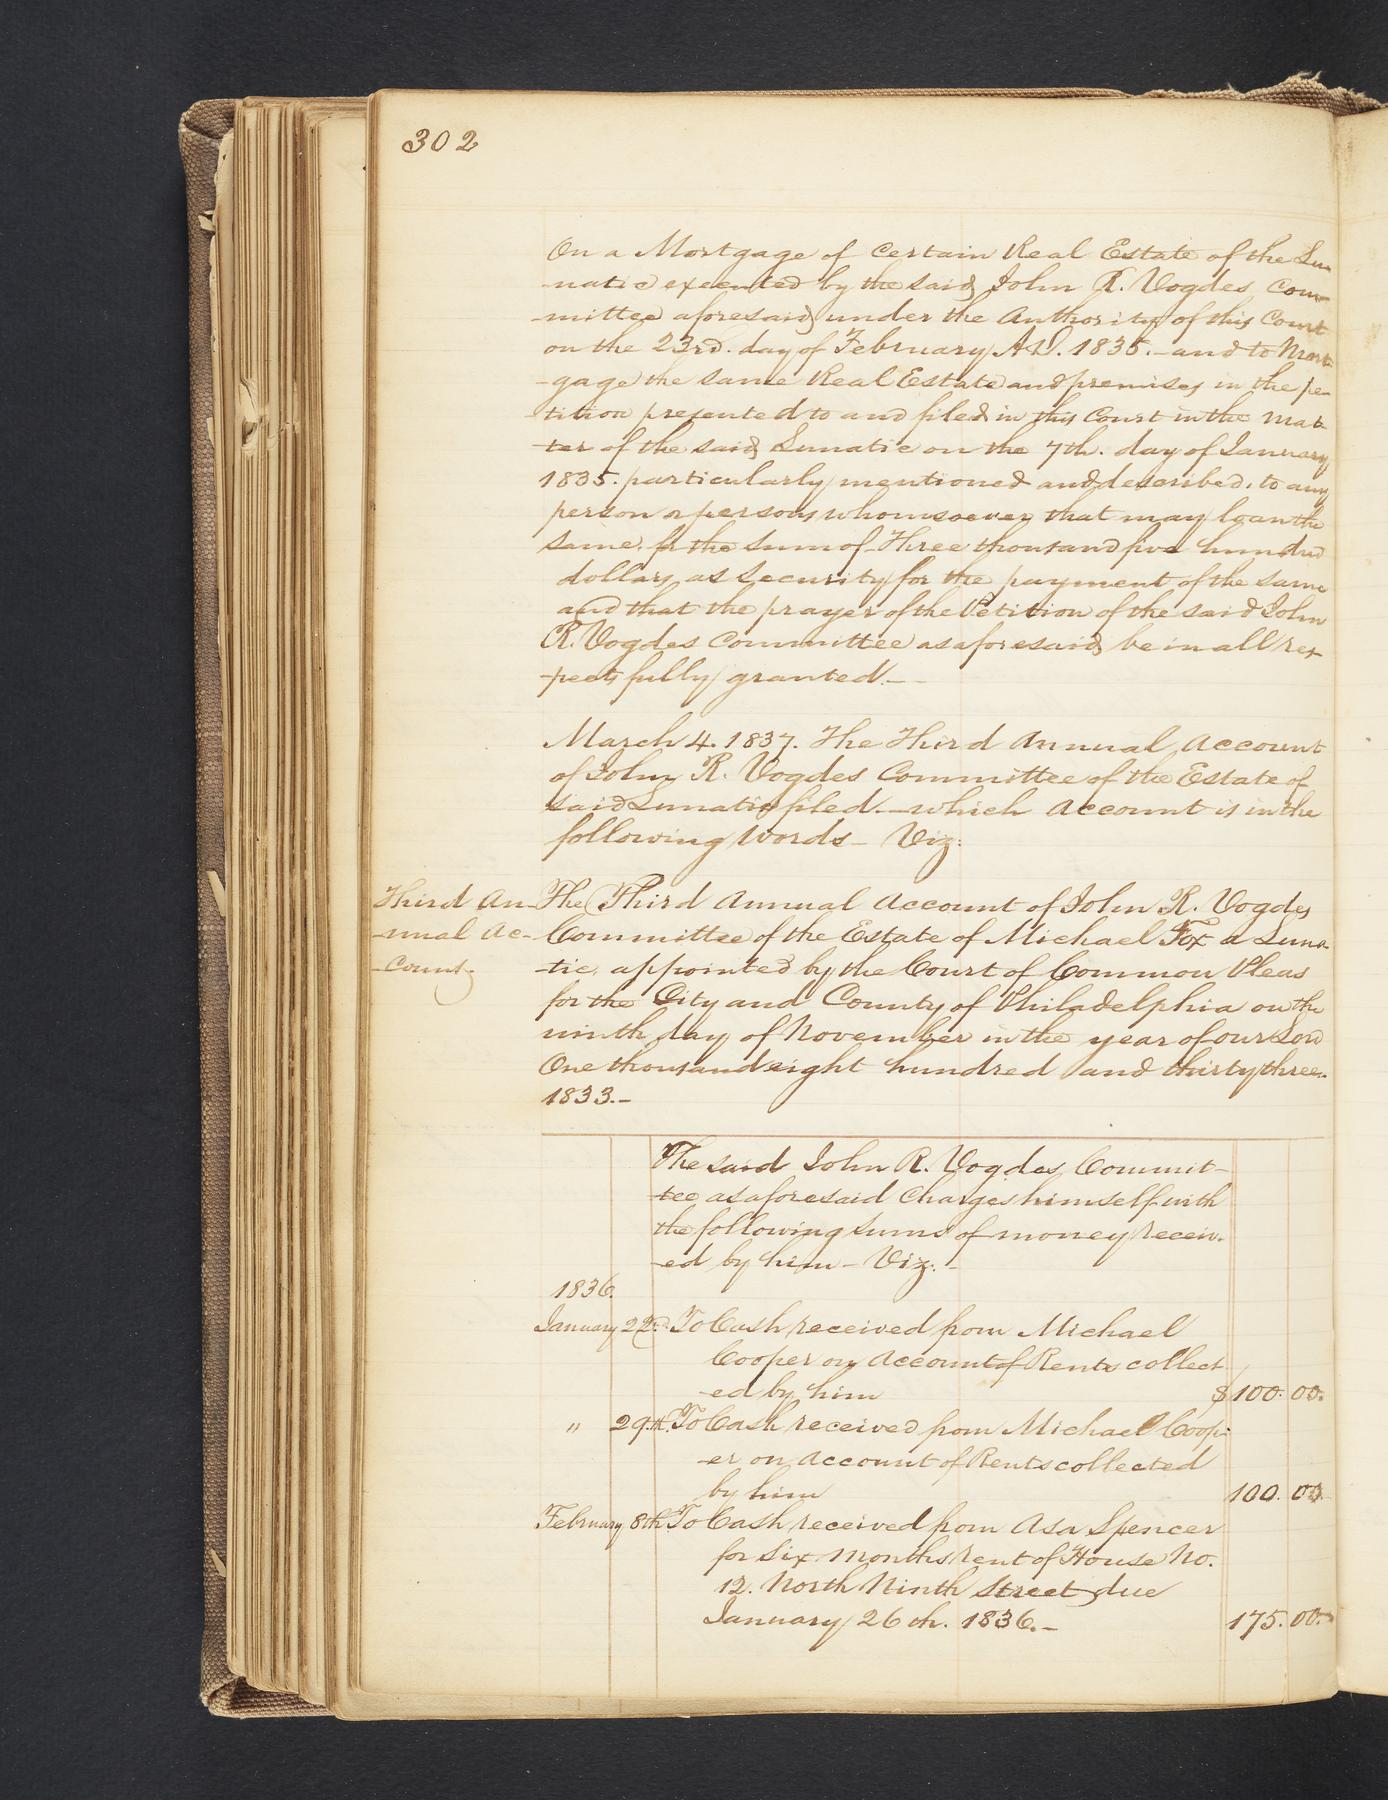 302
On a Mortgage of Certain Real Estate of the Lu
-natic executed by the said John R. Vogdes Com-
-mittee aforesaid under the Authority of this Court
on the 23rd. day of February A.D. 1835.- and to Mort-
-gage the same Real Estate and premises in the pe-
-tition presented to and filed in this Court in the mat-
-ter of the said Lunatic on the 7th. day of January
1835. particularly mentioned and described. to any
person or persons whomsoever that may loan the
same. for the sum of Three thousand five hundred
dollars as security for the payment of the same
and that the prayer of the Petition of the said John
R. Vogdes Committee as aforesaid be in all res-
-pects fully granted.-
March 4. 1837. The Third Annual Account
of John R. Vogdes Committee of the Estate of
said Lunatic filed.- which Account is in the
following words - Viz:
Third An-
-nual Ac-
-count.
The Third Annual Account of John R. Vogdes
Committee of the Estate of Michael Fox a Luna-
-tic. appointed by the Court of Common Pleas
for the City and County of Philadelphia on the
ninth day of November in the year of our Lord
One thousand eight hundred and thirty three.
1833.-
The said John R. Vogdes Commit-
-tee as aforesaid Charges himself with
the following sums of money receiv-
-ed by him - Viz: -
1836.
January 22d. To Cash received from Michael
Cooper on Account of Rents collect
-ed by him $ 100. 00.
" 29.th. To Cash received from Michael Coop-
-er on Account of Rents collected
by him 100. 00.
February 8th To Cash received from Asa Spencer
for Six Months rent of House No.
12. North Ninth Street due
January 26th. 1836.- 175. 00.